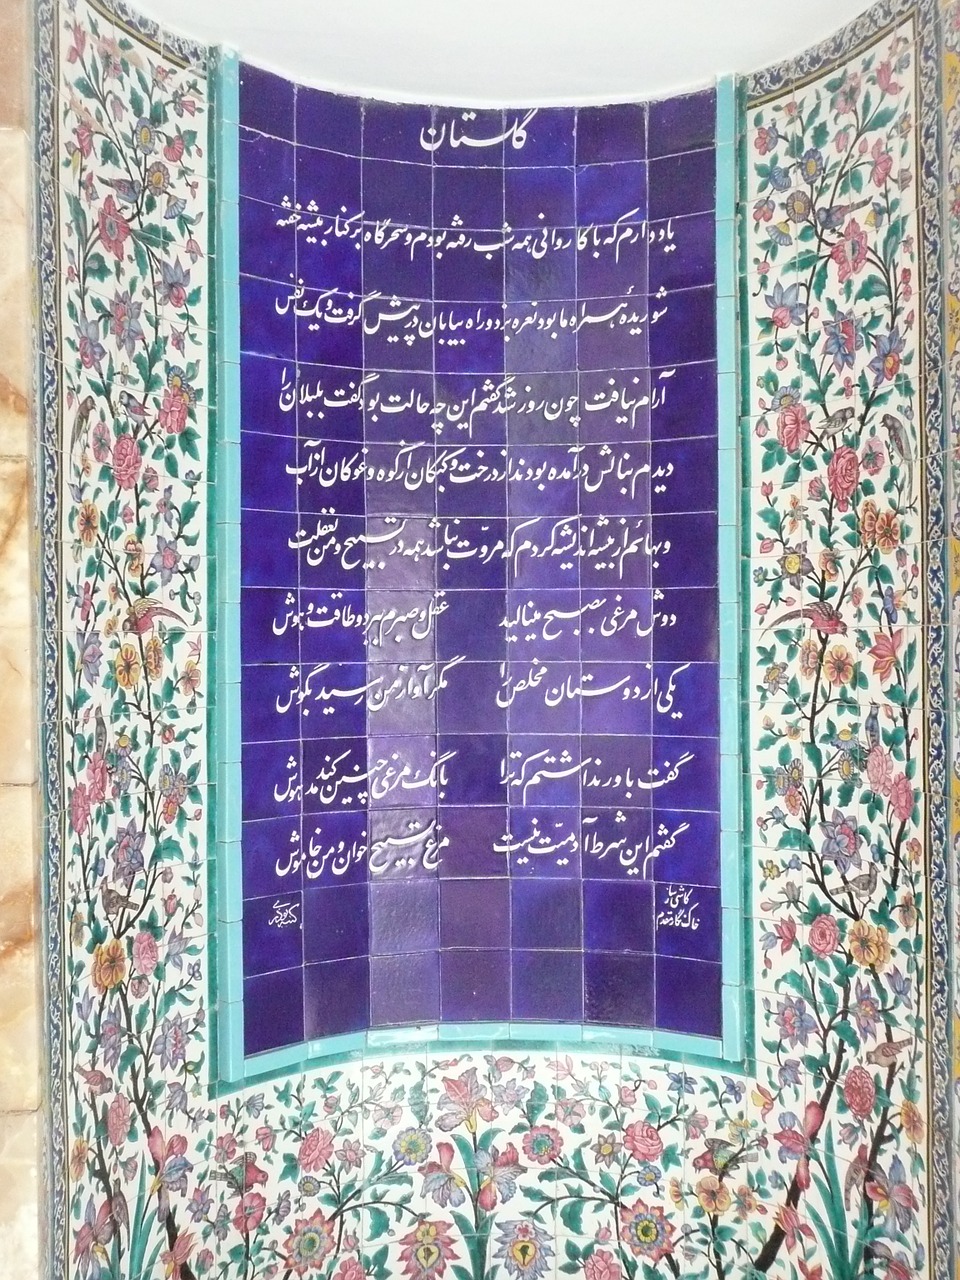 گلستان
یاد دارم که با کاروانی همه شب رفته بودم و سحرگاه بر کنار بیشه خفته
شوریدهٔ همراه ما بود نعره بزد و راه بیابان در پیش گرفت و یک نفس
آرام نیافت چون روز شد گفتم این چه حالت بود گفت بلبلان را
دیدم بنالش درآمده بودند از درخت و کبکان از کوه و غوکان از آب
و بهائم از بیشه اندیشه کردم که مروّت نباشد همه در تسبیح و من بغفلت
دوش مرغی بصبح مینالید عقل و صبرم ببرد و طاقت و هوش
یکی از دوستان مخلص را مگر آواز من رسید بگوش
گفت باور نداشتم که ترا بانگ مرغی چنین کند مدهوش
گفتم این شرط آدمیّت نیست مرغ تسبیح خوان و من خاموش
کاشی ساز
خاک نگار مقدم